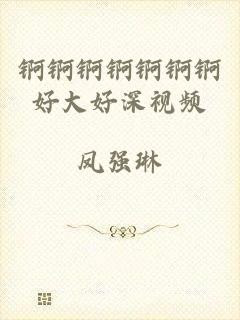 锕锕锕锕锕锕锕
好大好深视频
凤强琳